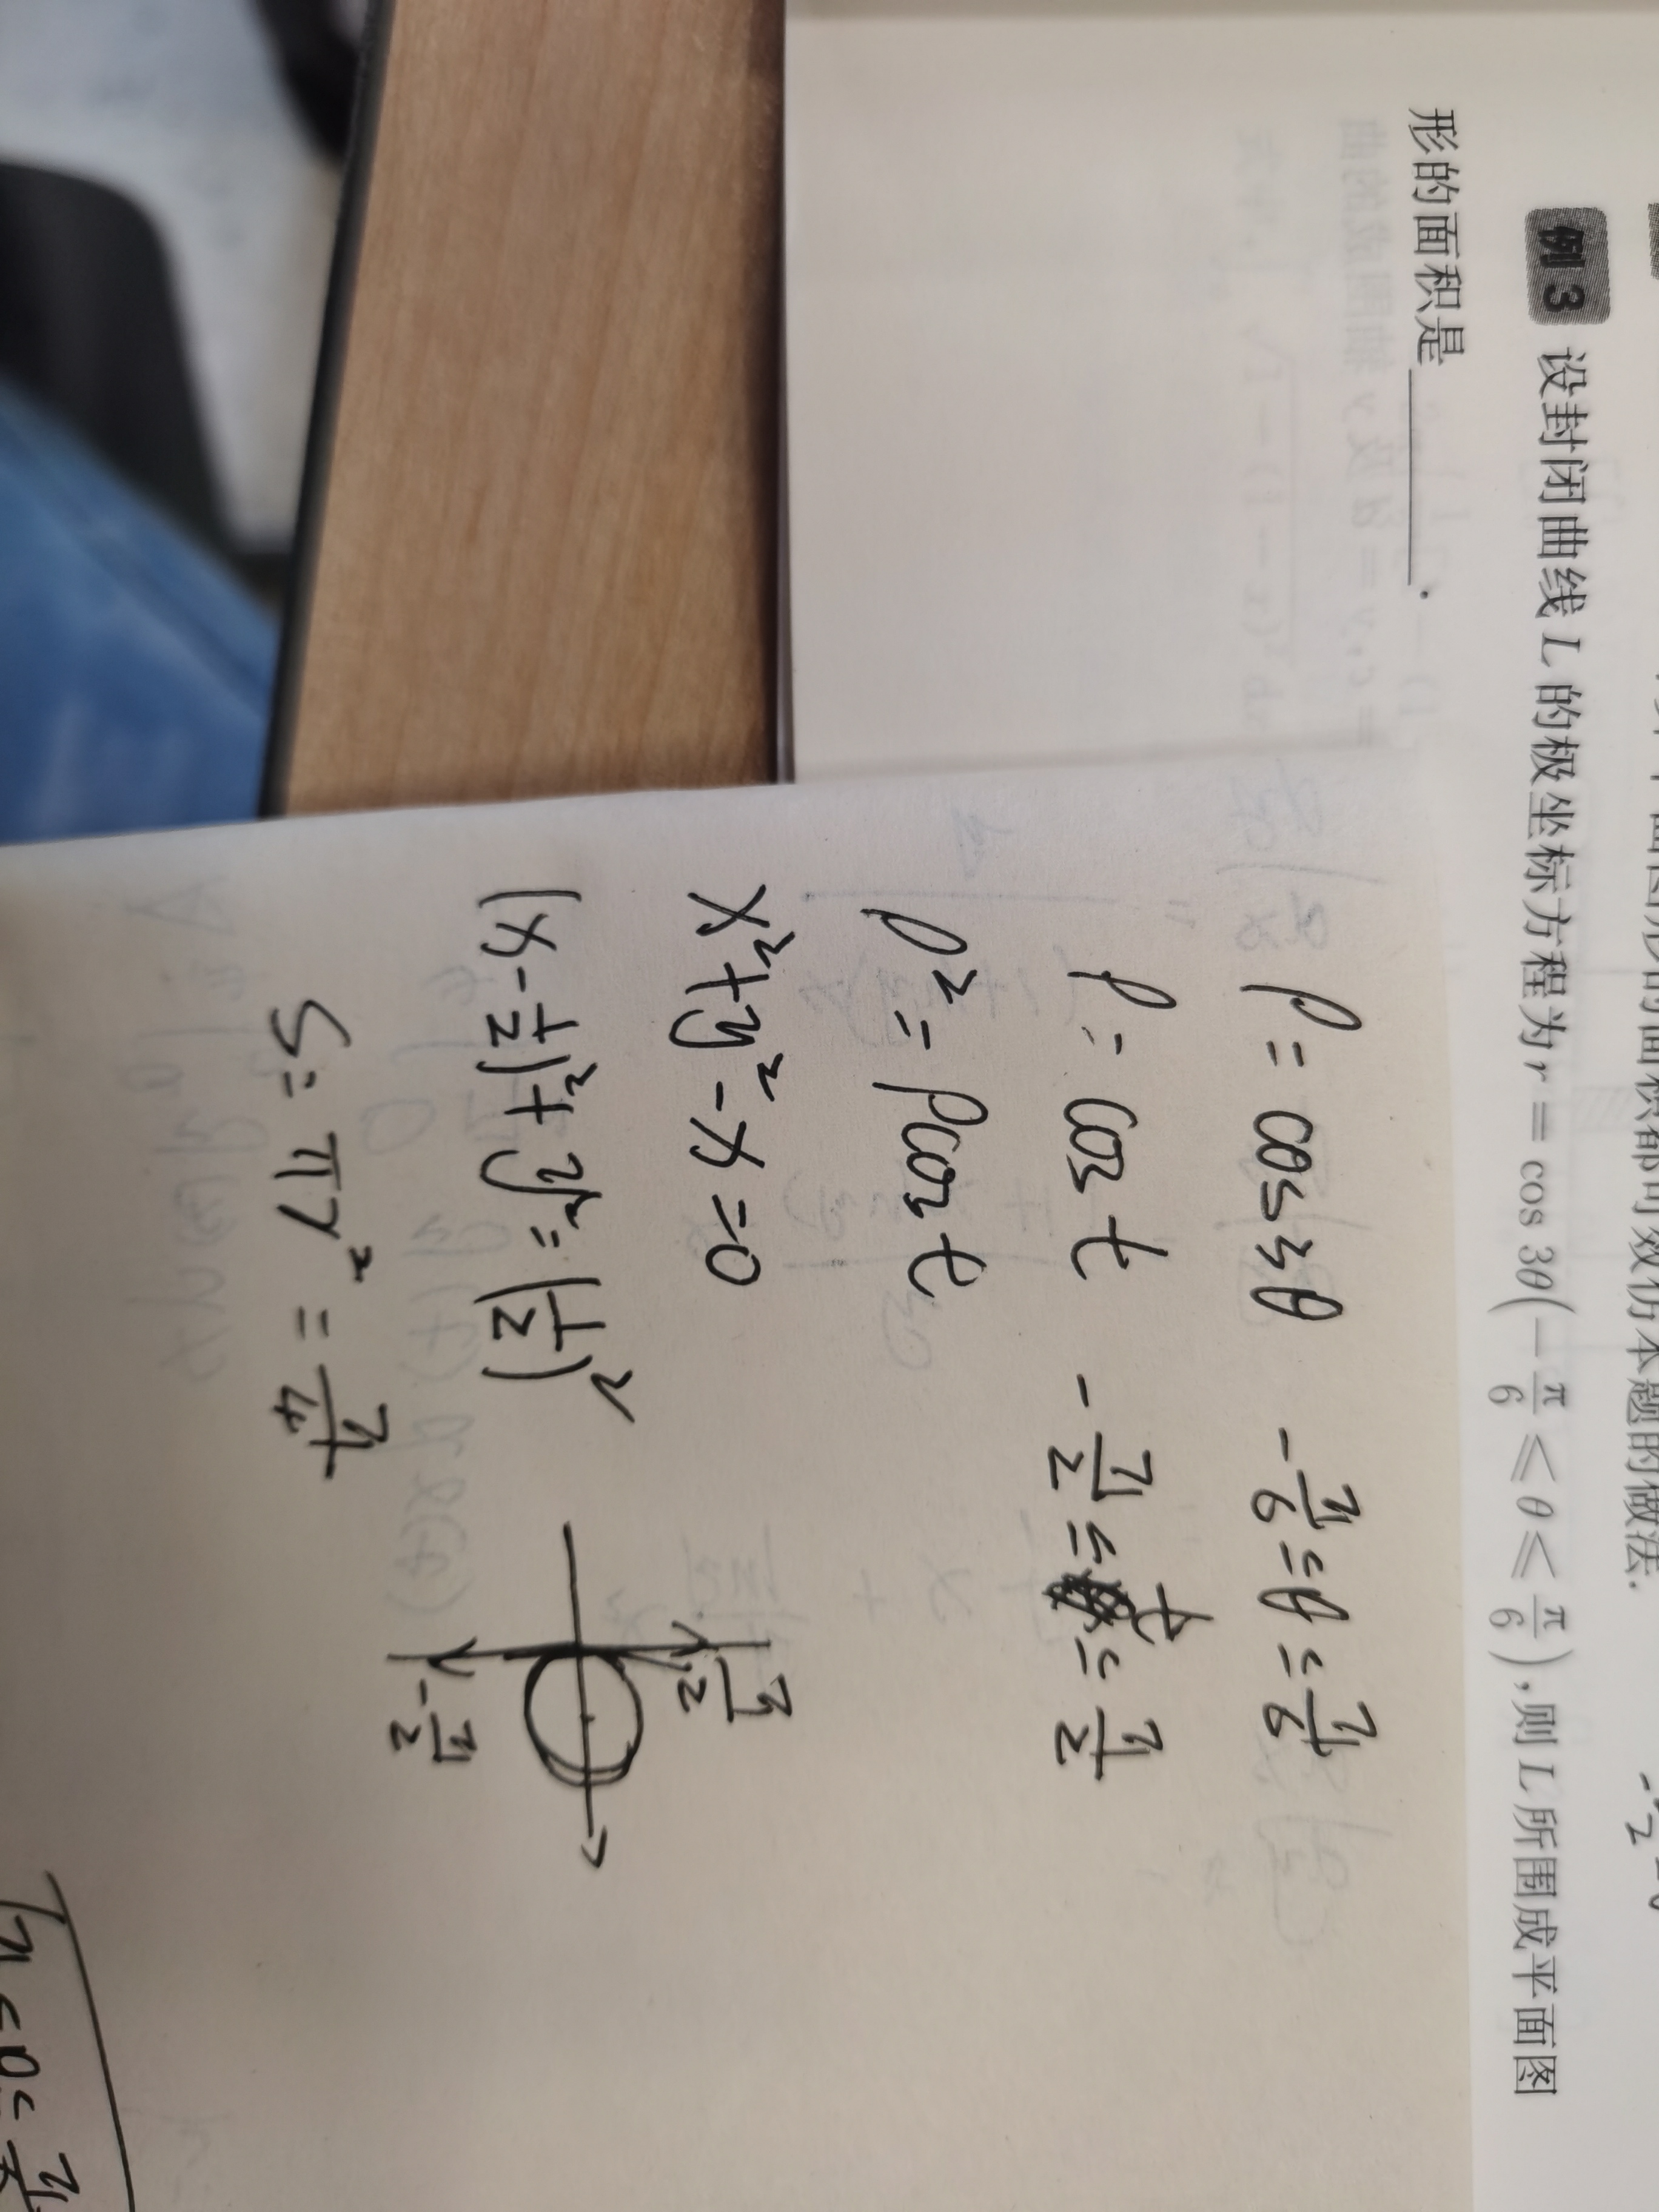 曲图形的面积都可效仿本题的做法.
例3 设封闭曲线 L 的极坐标方程为 r = cos 3θ(-π/6 ≤ θ ≤ π/6),则 L 所围成平面图
形的面积是________.
ρ = cos3θ -π/6 ≤ θ ≤ π/6
ρ = cos t -π/2 ≤ t ≤ π/2
ρ² = ρcos t
x²+y²-x=0
(x-1/2)²+y²=(1/2)²
π/2
-π/2
S= πr² = π/4